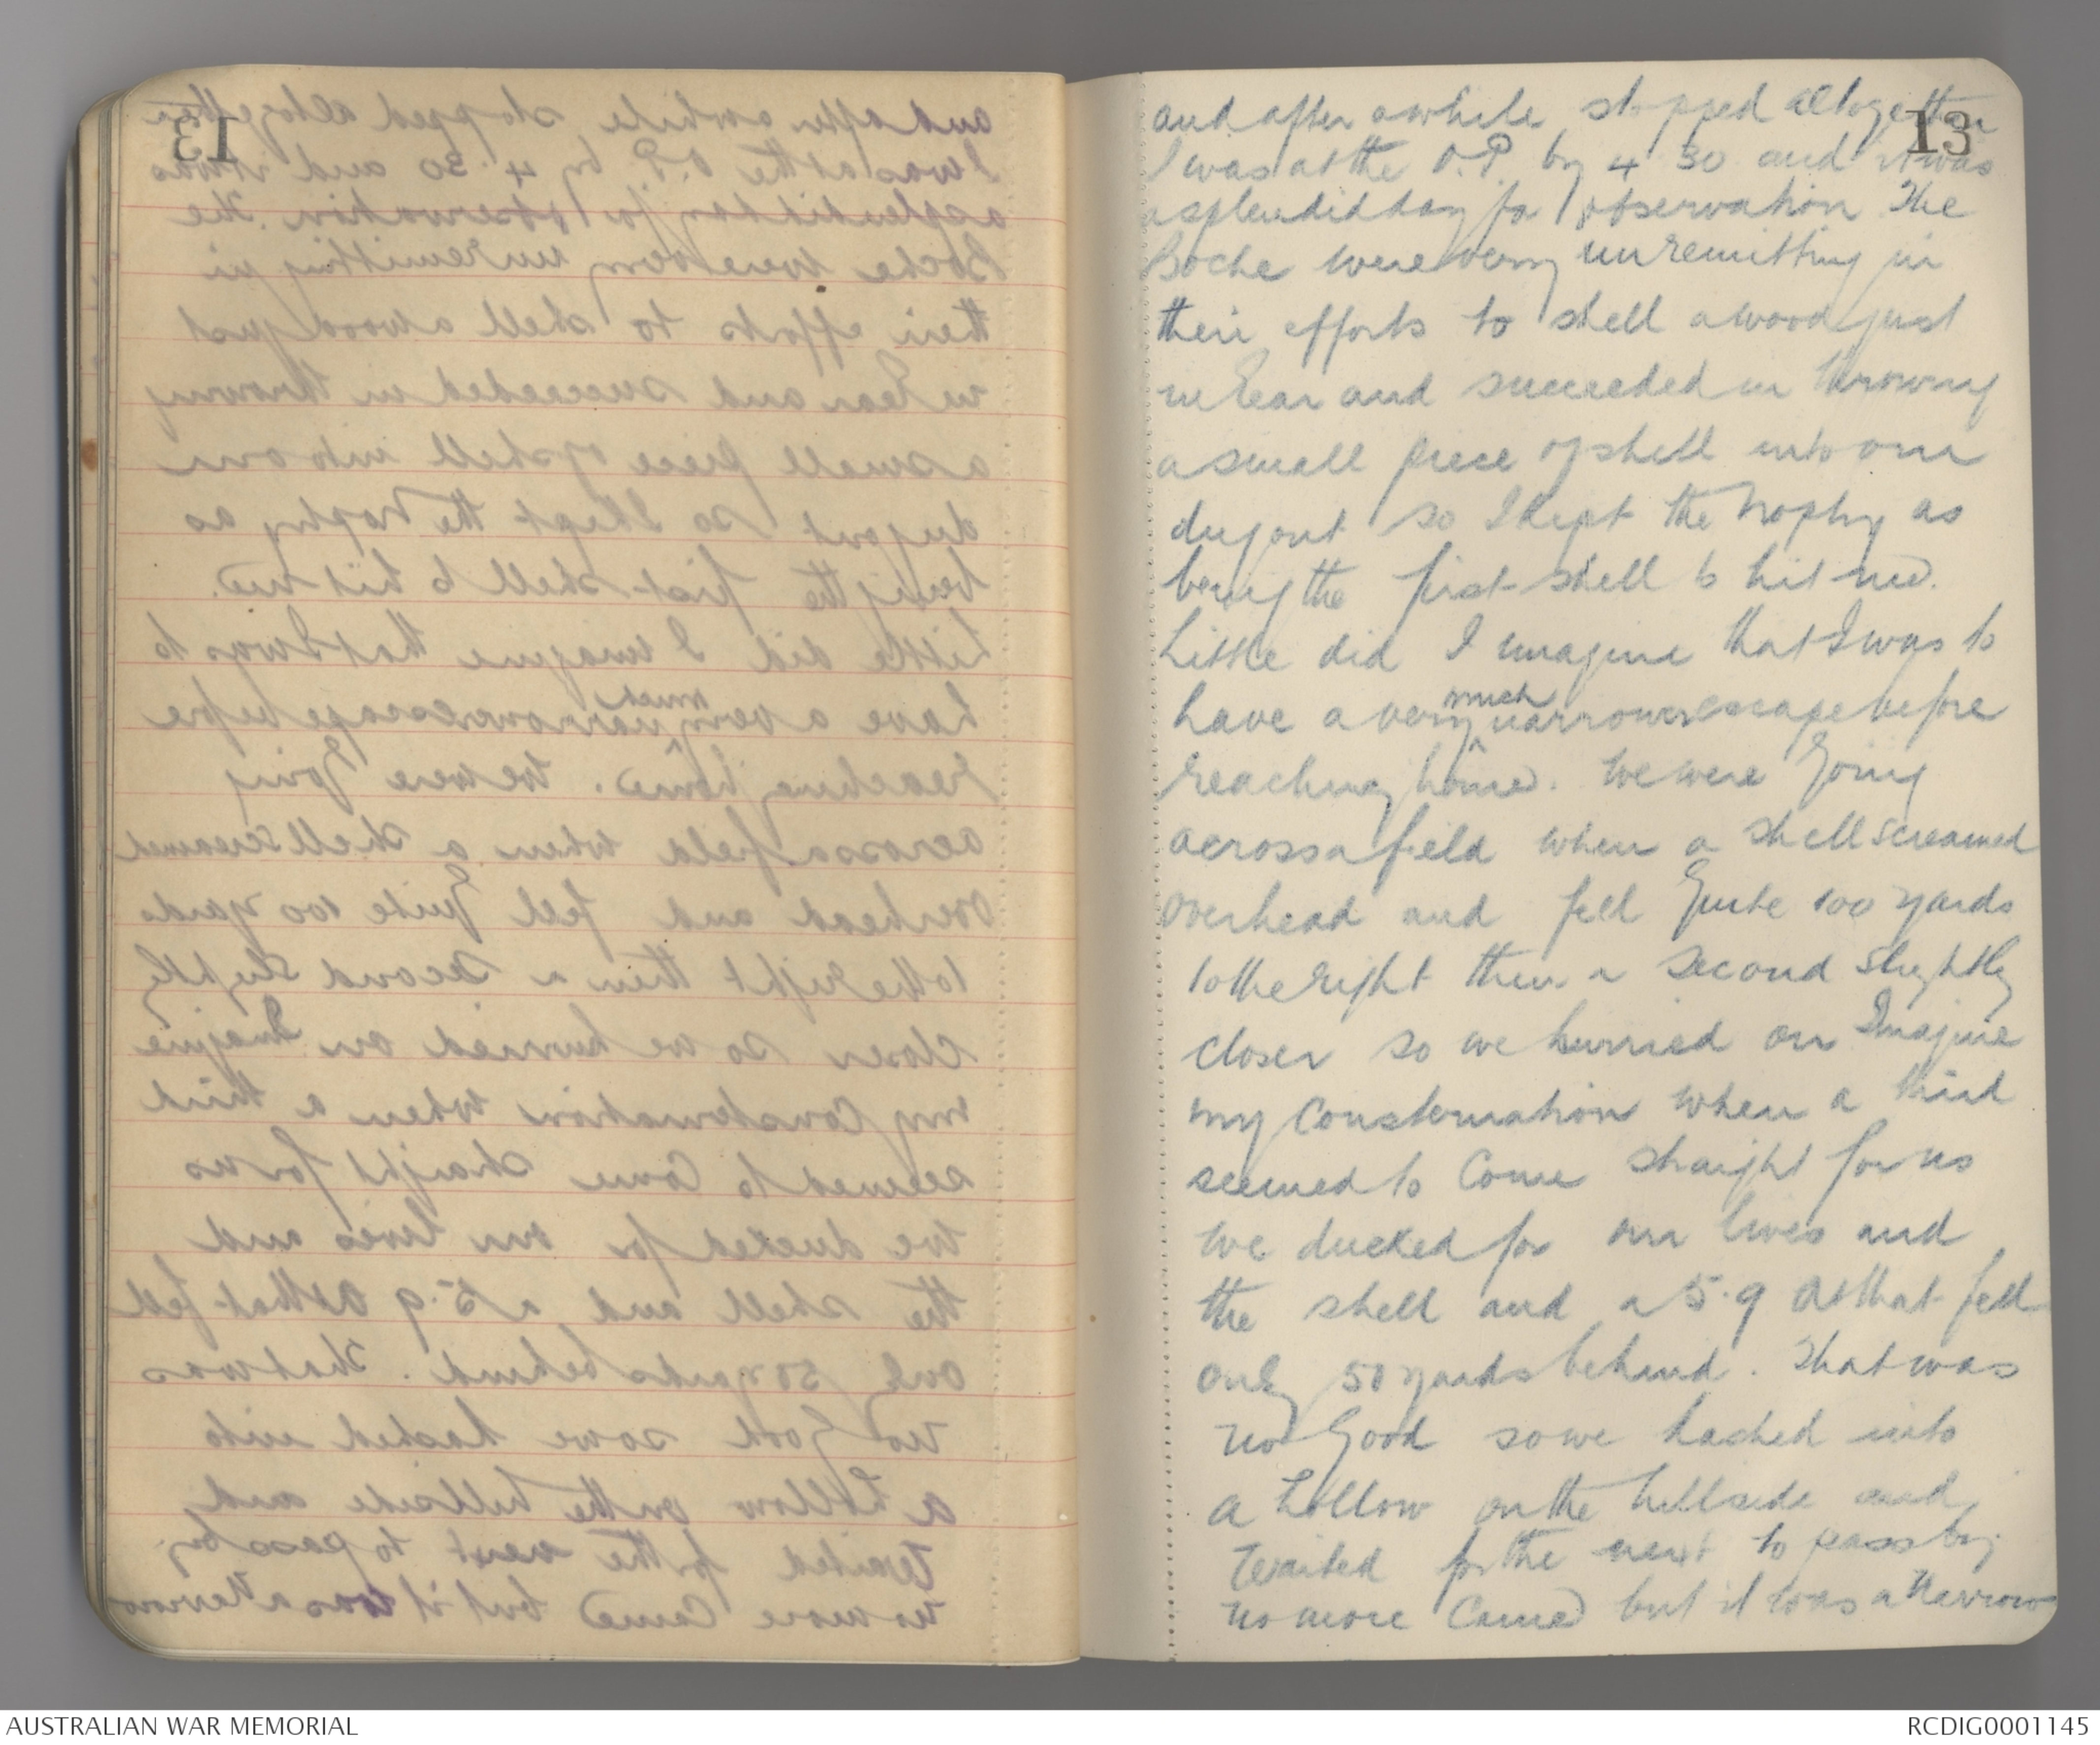 13
and after awhile stopped altogether
I was at the O.P. by 4 30 and it was
a splendid day for observation The
Boche were very unremitting in
their efforts to shell a wood just
in rear and succeeded in throwing
a small piece of shell into our
dugout so I kept the trophy as
being the first shell to hit me.
Little did I imagine that I was to
have a very much narrower escape before
reaching home. We were going
across a field when a shell screamed
overhead and fell Quite 100 yards
to the right then a second slightly
closer so we hurried on Imagine
my Consternation when a third
seemed to Come straight for us
We ducked for our lives and
the shell and a 5.9 at that fell
only 50 yards behind. That was
no Good so we hasted into
a hollow on the hillside and
Waited for the next to pass by
no more Came but it was a Narrow
AUSTRALIAN WAR MEMORIAL
RCDIG0001145